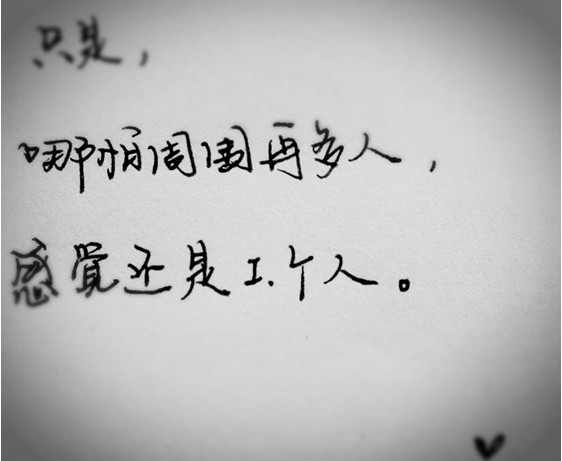 只是，
哪怕周围再多人，
感觉还是I.个人。